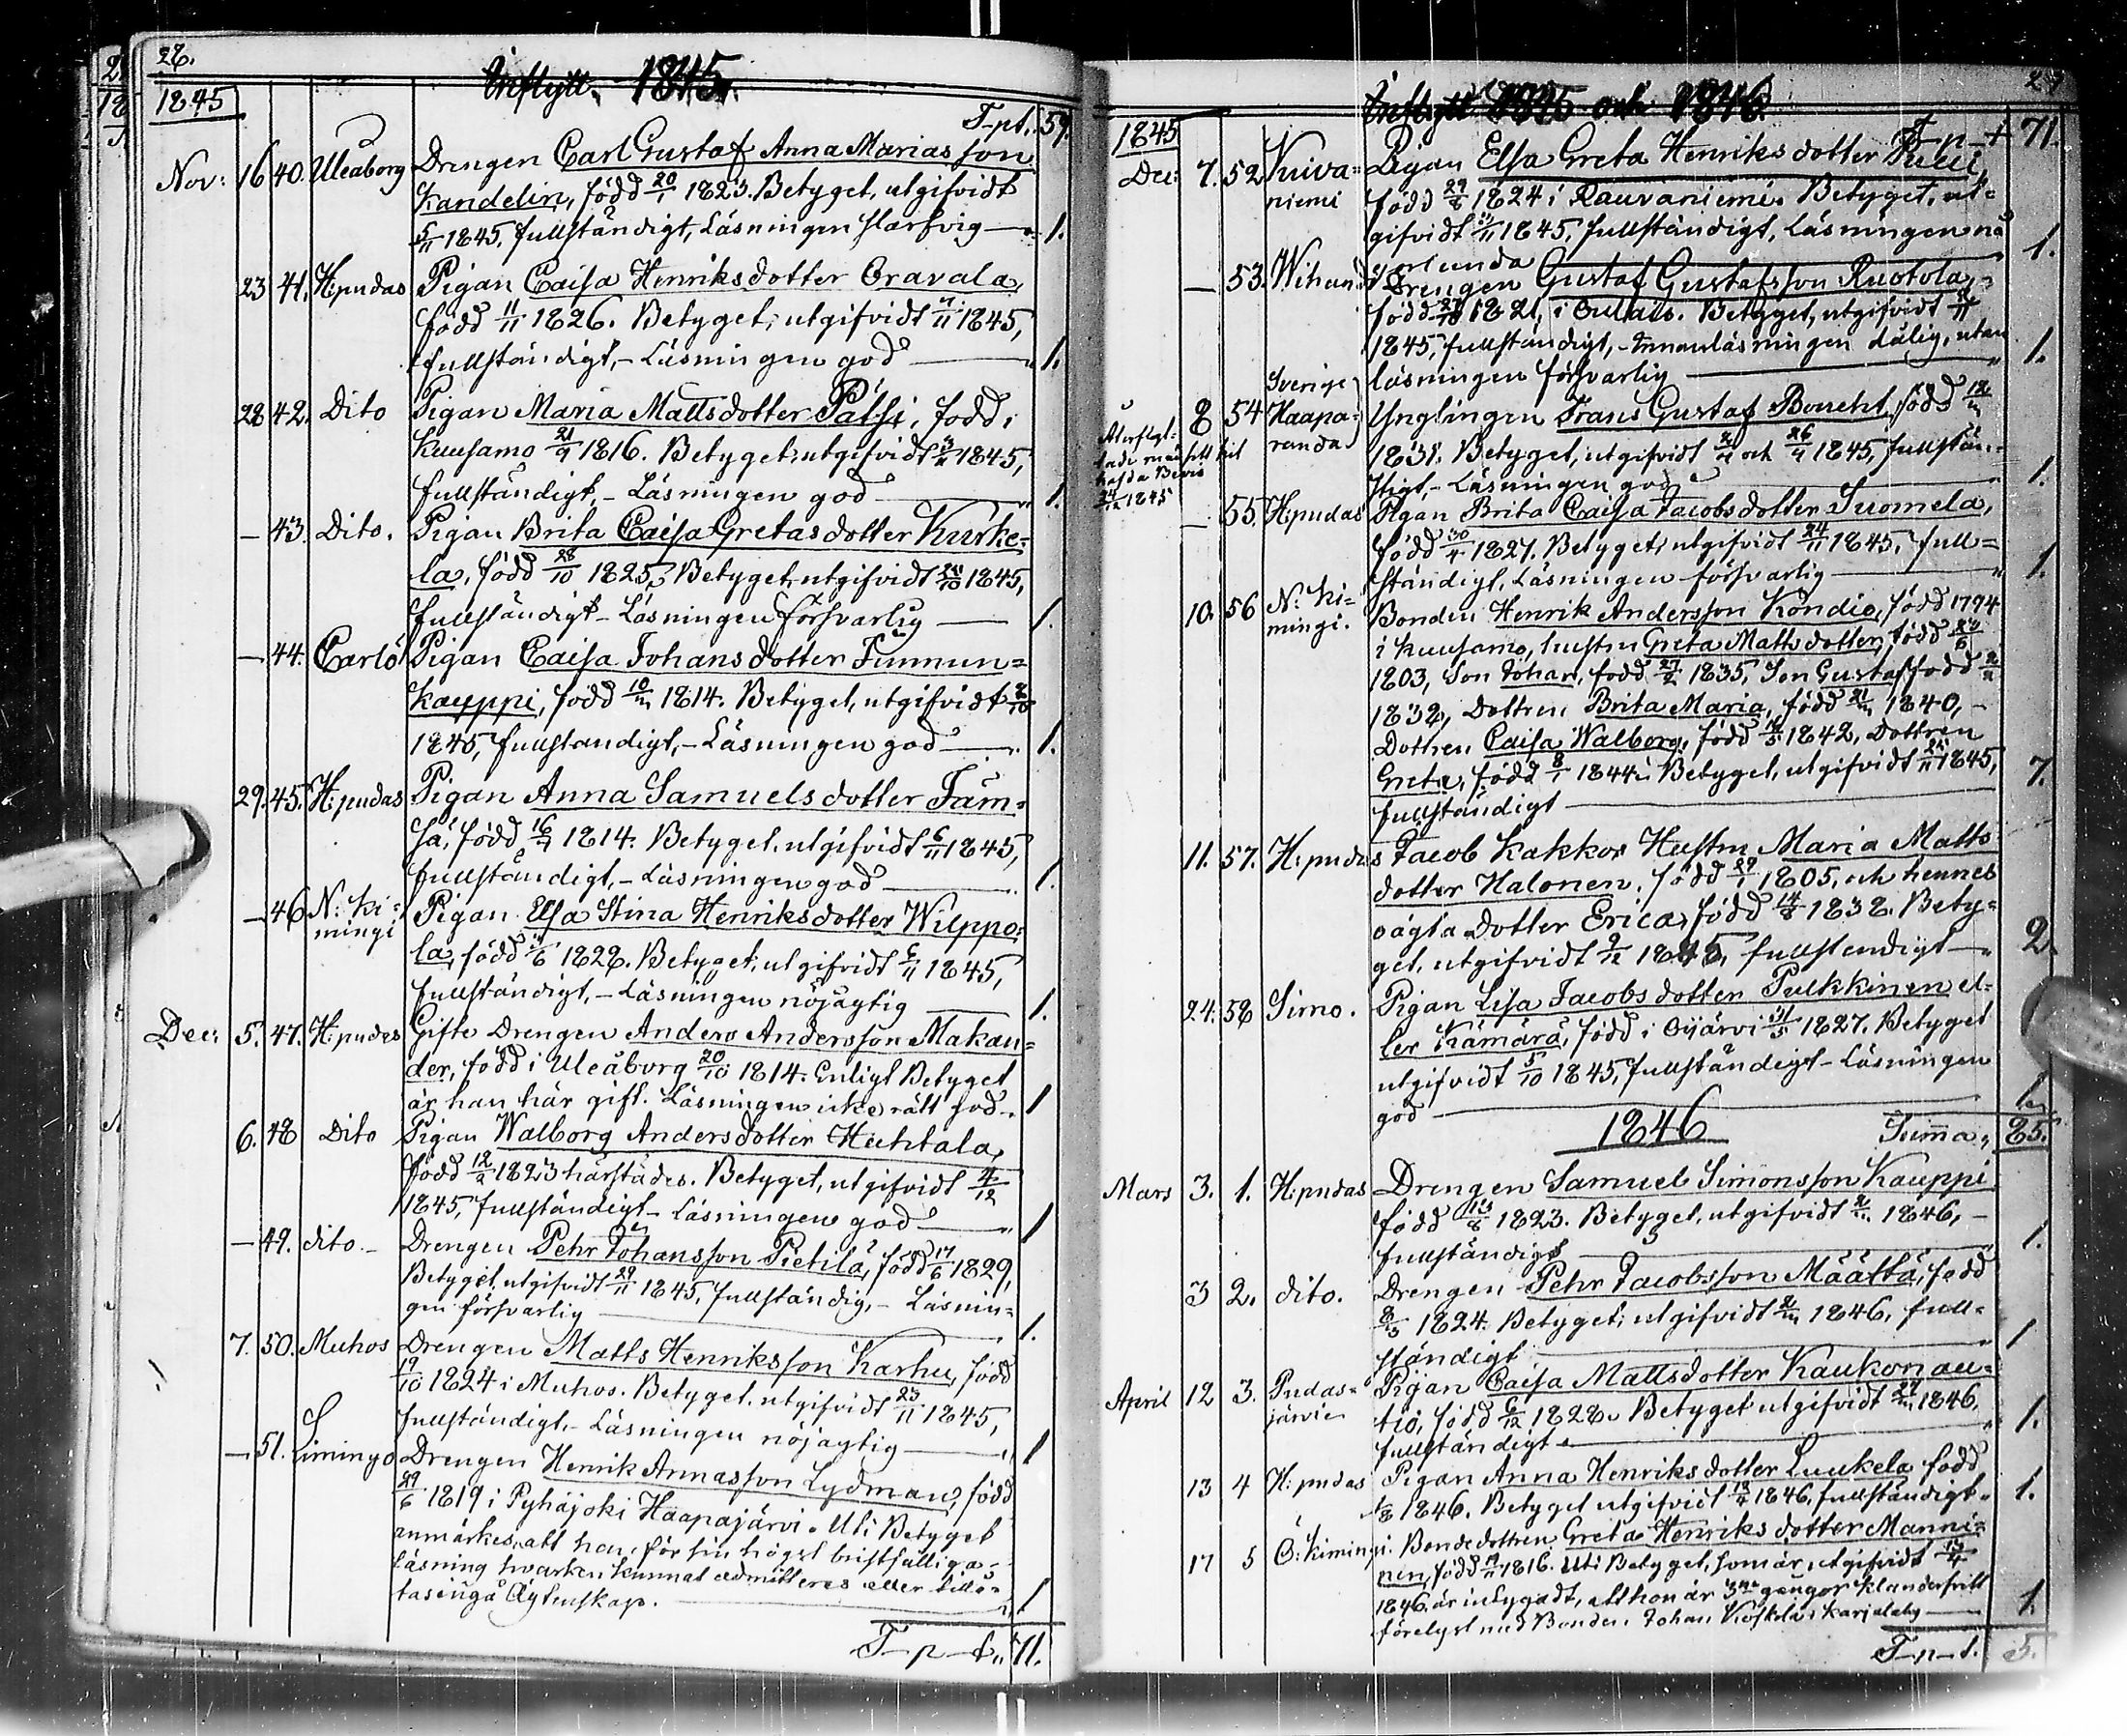 26.
Inflytt. 1845.
1845
T-pt. 59.
Nov: 16 40. Uleåborg Drengen Carl Gustaf Anna Marias son
Kandelin, född 20/1 1823. Betyget, utgifvidt
5/11 1845, fullständigt, Läsningen slarfvig 1.
23 41. H:pudas Pigan Caisa Henriksdotter Oravala,
född 11/11 1826. Betyget, utgifvidt 1845,
fullständigt, - Läsningen god 1.
28 42. Dito Pigan Maria Mattsdotter Pätsi, född i
Kuusamo 21/9 1816. Betyget, utgifvidt 1845,
fullständigt, - Läsningen god 1.
- 43. Dito. Pigan Brita Caisa Gretasdotter Kurke=
la, född 28/10 1825, Betyget utgifvidt 1845,
fullständigt - Läsningen försvarlig 1.
- 44. Carlö Pigan Caisa Johansdotter
Kauppi, född 1814. Betyget, utgifvidt
1845, fullständigt, - Läsningen god 1.
29. 45. H:pudas Pigan Anna Samuelsdotter Täm=
sä, född 1814. Betyget, utgifvidt 6/11 1845,
fullständigt, - Läsningen god 1.
- 46 N: Ki= Pigan Elsa Stina Henriksdotter Wilppo=
mingi la, född 1828. Betyget, utgifvidt 6/11 1845,
fullständigt, - Läsningen nöjagtig 1.
Dec: 5. 47. H:pudas Gifte Drengen Anders Andersson Makan=
der, född i Uleåborg 20/10 1814. Enligt Betyget
är han här gift. Läsningen icke rätt god. 1
6. 48 Dito Pigan Walborg Andersdotter Huhtala,
född 12/2 1823 härstädes. Betyget, utgifvidt 4/12
1845, fullständigt - Läsningen god 1
- 49. dito. Drengen Pehr Johansson Pietilä, född 17/6 1829,
Betyget, utgifvidt 29/11 1845, fullständig, - Läsnin=
gen försvarlig 1.
7. 50. Muhos Drengen Matts Henriksson Karhu, född
19/10 1824 i Muhos. Betyget, utgifvidt 23/11 1845,
fullständigt, - Läsningen nöjagtig 1
- 51. Limingo Drengen Henrik Annasson Lydman, född
29/6 1819 i Pyhäjoki Haapajärvi. Uti Betyget
anmärkes, att han, för sin högst bristfälliga
läsning hvarken kunnat admitteras eller tillå=
tas ingå Ägtenskap. 1
T-p-t. 71.
27
Inflytt 1845 och 1846.
1845
T-p-t 71.
Dec: 7. 52 Kuiva= Pigan Elsa Greta Henriksdotter
niemi född 29/8 1824 i Rauvaniemi. Betyget, ut=
gifvidt 1845, fullständigt, Läsningen nå
gorlunda 1.
- 53. Wihan Drengen Gustaf Gustafsson Ruotola,
född 1821, i Oulais. Betyget, utgifvidt
1845, fullständigt, - Innanläsningen dålig, utan
läsningen försvarlig 1.
Sverige
8 54 Haapa= Ynglingen Frans Gustaf Boucht, född
randa 1831. Betyget, utgifvidt och 26/4 1845, fullstän=
digt, - Läsningen god 1.
1845
- 55. H:pudas Pigan Brita Caisa Jacobsdotter Suomela,
född 30/4 1827. Betyget, utgifvidt 24/11 1845, full=
ständigt, Läsningen försvarlig 1.
10. 56 N: Ki= Bonden Henrik Andersson Kondio, född 1794
mingi. i Kuusamo, hustru Greta Mattsdotter, född
1803, Son Johan, född 27/2 1835, Son Gustaf född
1838, Dottren Brita Maria, född 1840, -
Dottren Caisa Walborg, född 1842, Dottren
Greta, född 8/1 1844. Betyget, utgifvidt 1845, 7.
fullständigt
11. 57. H:pudas Jacob Kakkos Hustru Maria Matts
dotter Halonen, född 29/1 1805, och hennes
oägta Dotter Erica, född 14/8 1838. Bety=
get, utgifvidt 1845, fullstendigt 2.
24. 58 Simo. Pigan Lisa Jacobsdotter Pulkkinen el=
ler Kämärä, född i Oijärvi 1827. Betyget
utgifvidt 5/10 1845, fullständigt - Läsningen
god 1.
1846 Summa, 85.
Mars 3. 1. H:pudas Drengen Samuel Simonsson Kauppi
född 13/8 1823. Betyget, utgifvidt 1846, -
fullständigt 1.
3 2. dito. Drengen Pehr Jacobsson Määttä, född
1824. Betyget, utgifvidt 1846, full=
ständigt 1
April 12 3. Pudas= Pigan Caisa Mattsdotter Kaukonau=
järvi tio, född 6/12 1828. Betyget utgifvidt 1846,
fullständigt 1.
13 4 H:pudas Pigan Anna Henriksdotter Luukela född
1846. Betyget utgifvidt 1846, fullständigt. 1.
17 5 Ö: Kimingi. Bondedottren Greta Henriksdotter Manni=
nen, född 1816. Uti Betyget, som är utgifvidt 13/4
1846, är intygadt, att hon är 3ne gångor klanderfritt
förelyst med Bonden Johan Koskela i Karjalaby 1.
T-p-t. 5.